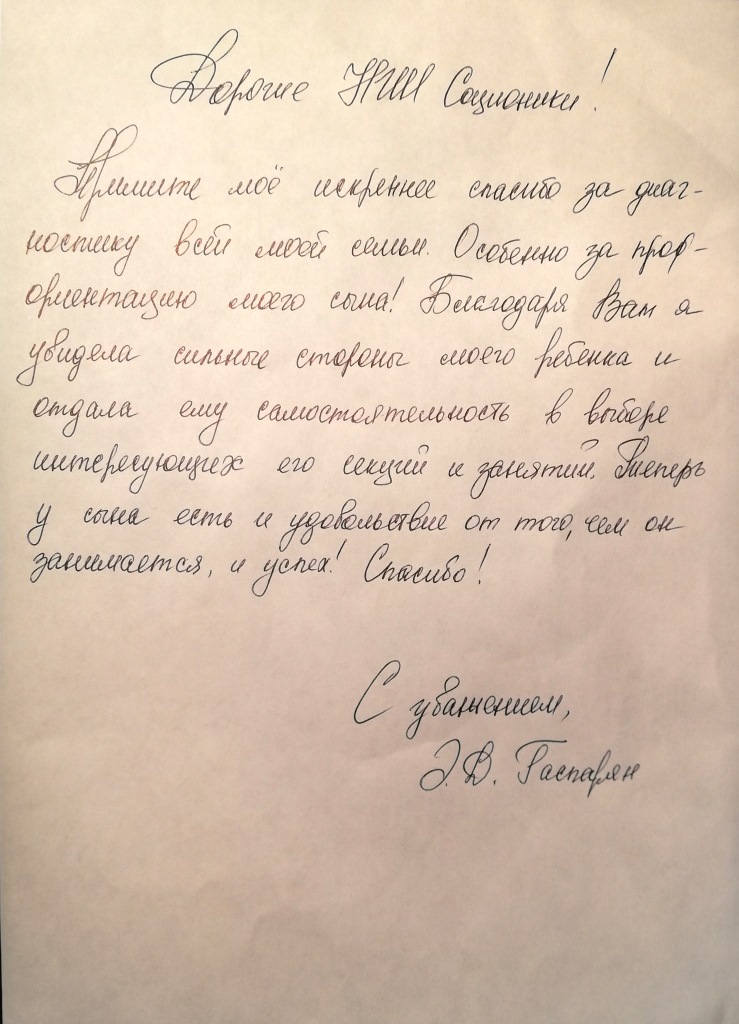 Дорогие НИИ Соционики!
Примите моё искреннее спасибо за диаг-
ностику всей моей семьи. Особенно за проф-
ориентацию моего сына! Благодаря Вам я
увидела сильные стороны моего ребенка и
отдала ему самостоятельность в выборе
интересующих его секций и занятий. Теперь
у сына есть и удовольствие от того, чем он
занимается, и успех! Спасибо!
С уважением,
Э.В. Гаспарян